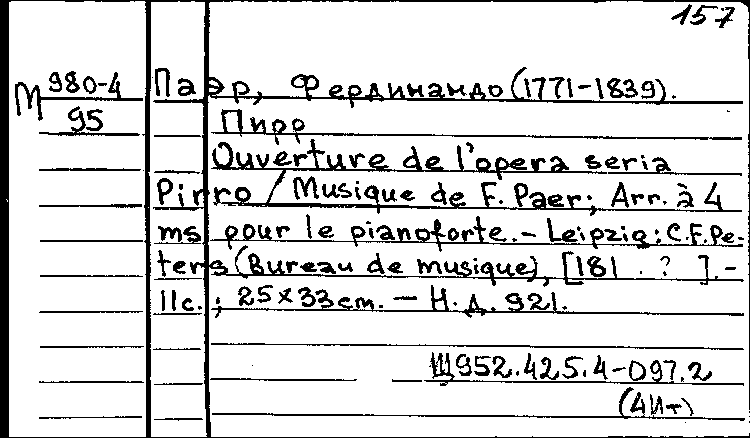 157
М 980-4 Паэр, Фердинандо (1771-1839).
95 Пирр
Ouverture de l'opera seria
Pirro / Musique de F. Paer; Arr. à 4
ms pour le pianoforte. - Leipzig: C.F. Pe-
ters (Bureau de musique), [181 . ? ]. -
11с.; 25x33cm. — Н.д. 921.
Щ952.425.4-097.2
(4Ит)